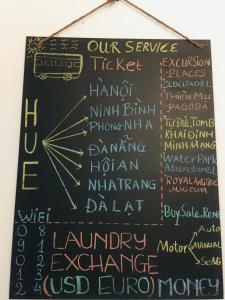 OUR SERVICE
Ticket
HUE
HÀNỘI
NINH BÌNH
PHONG NHA
ĐÀ NẴNG
HỘI AN
NHA TRANG
ĐÀ LẠT
EXCURSION
PLACES
CITADEL
THIÊN MỤ
PAGODA
TỰ ĐỨC TOMB
KHẢI ĐỊNH
MINH MẠNG
WATER PARK
Abandoned
ROYAL
MUSEUM
Buy Sale. Rent
Motor
Auto
MANUAL
Semi
WiFi
0 8
9 0
0 1
0 2
2 3
3 4
LAUNDRY
EXCHANGE
(USD EURO) MONEY